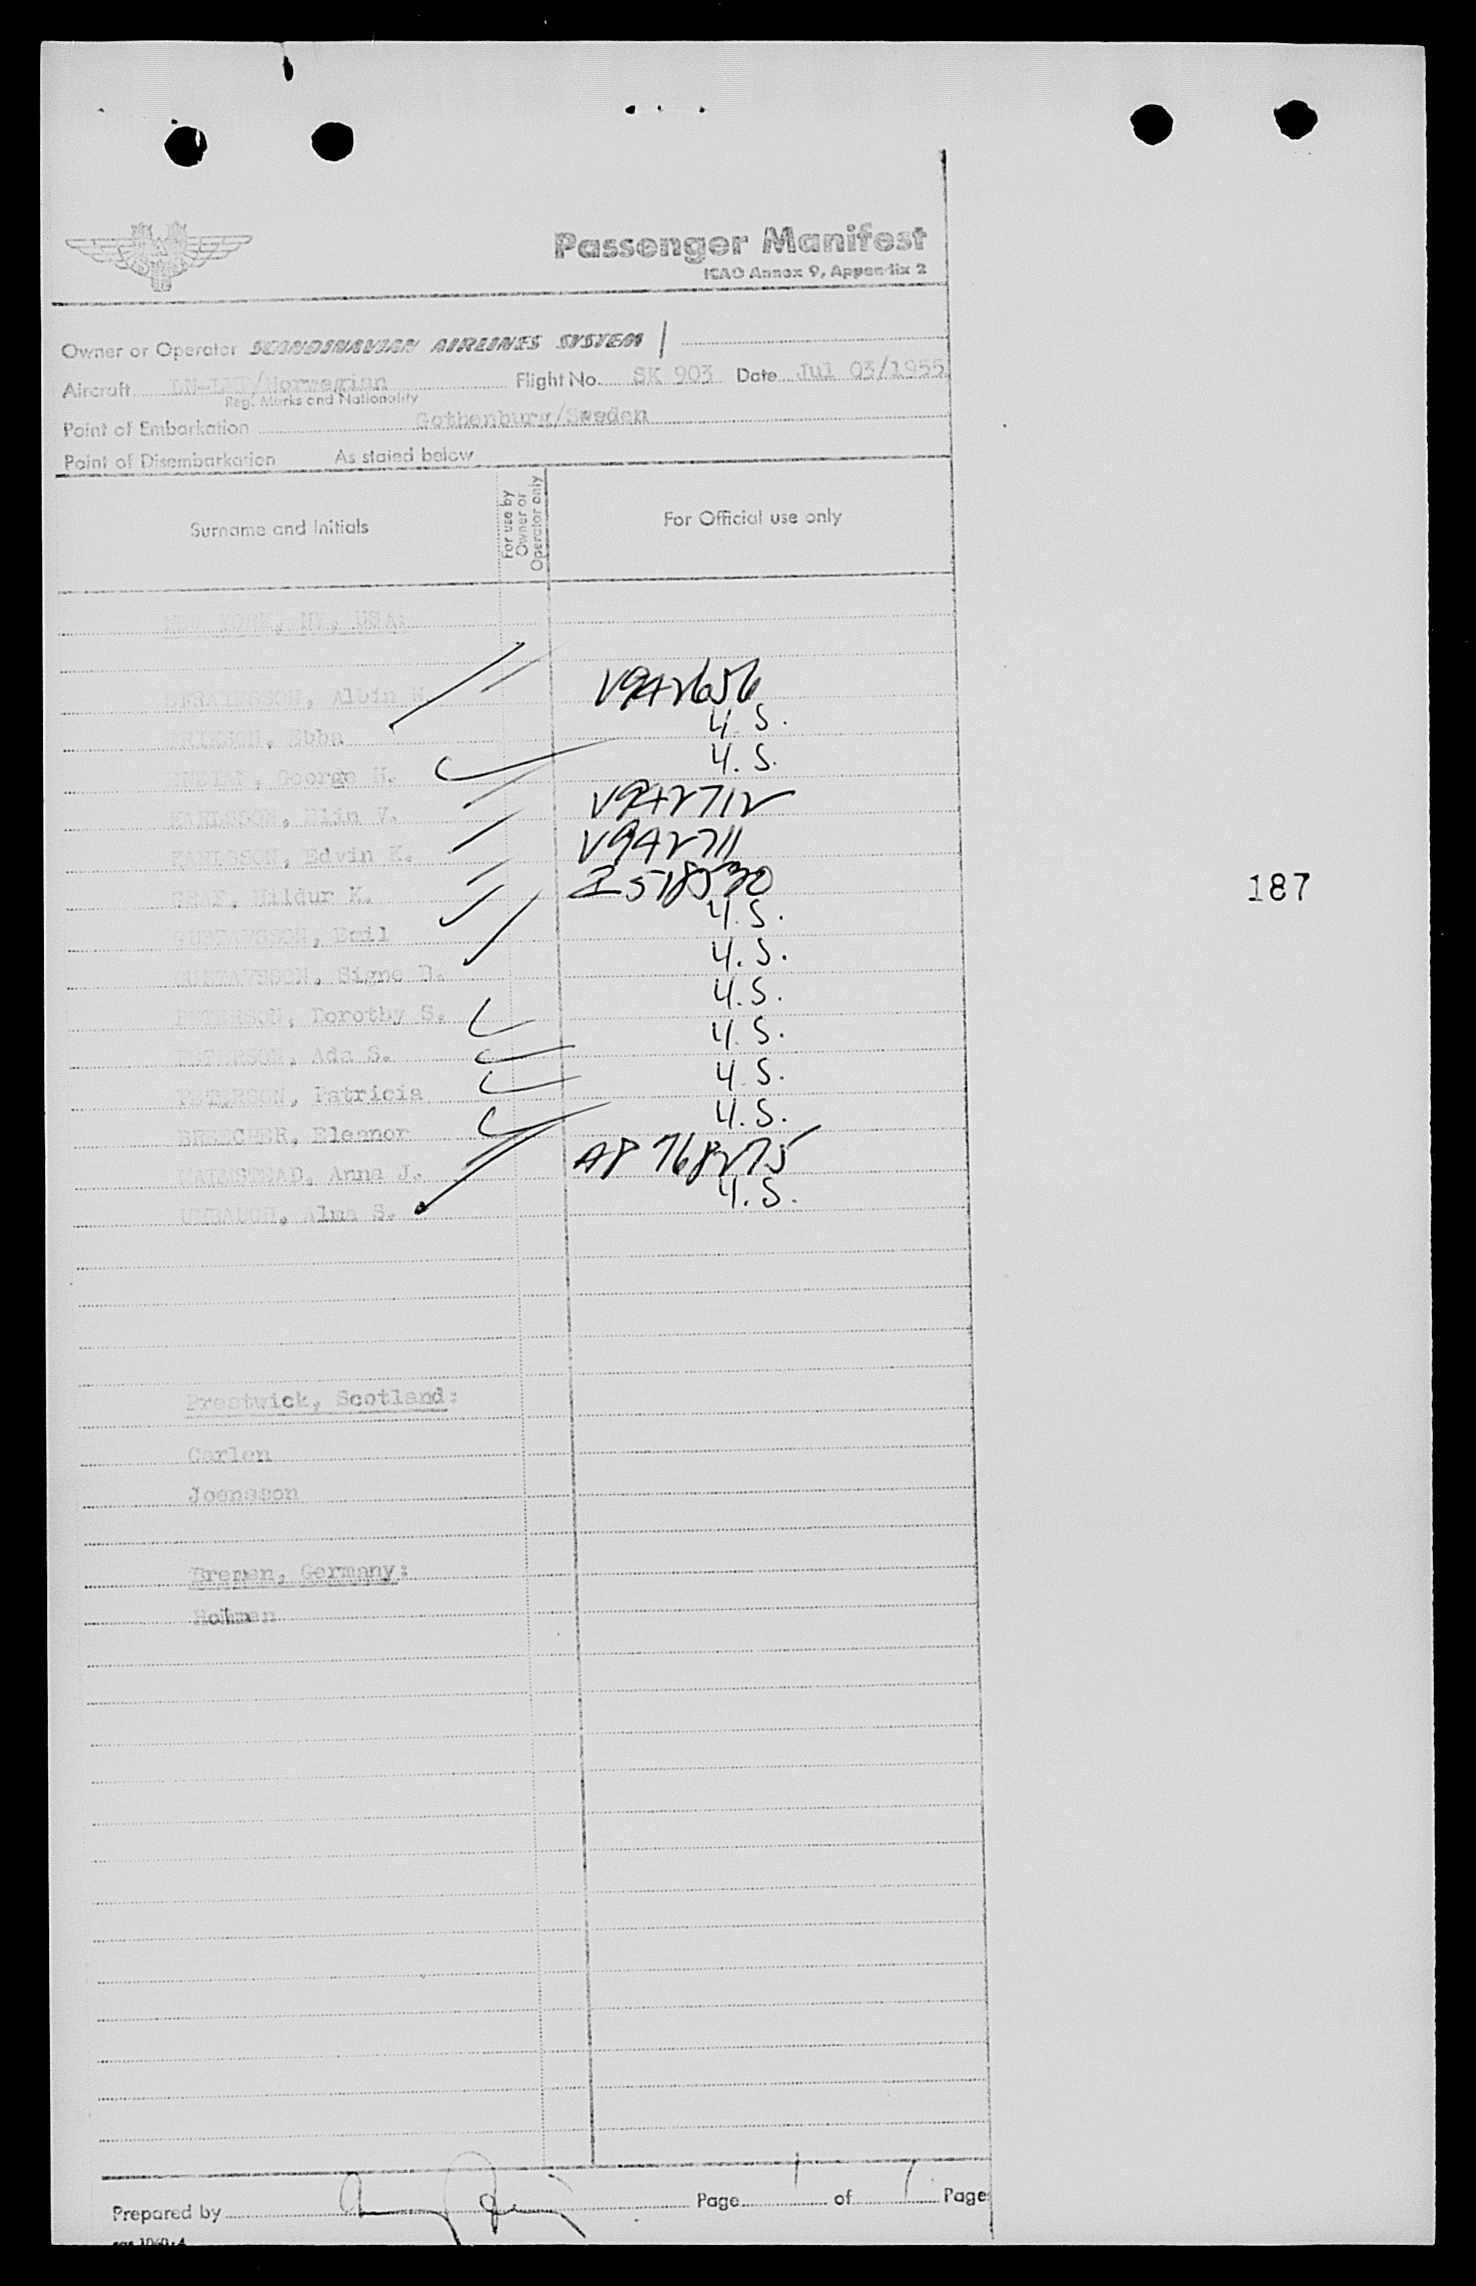 Passenger Manifest
ICAO Annex 9, Appendix 2
Owner or Operator SCANDINAVIAN AIRLINES SYSTEM
Aircraft /Norwegian Flight No. SK 903 Date Jul 03/1955
Reg. Marks and Nationality
Point of Embarkation Gothenburg/Sweden
Point of Disembarkation As stated below
Surname and Initials
For use by Owner or Operator only
For Official use only
NEW YORK, NY, USA:
Albin V942656
Ebba U.S.
George H. U.S.
KARLSSON, Elin V. V942712
KARLSSON, Edvin K. V942711
Hildur K. I 518530
GUSTAVSSON, Emil U.S.
GUSTAVSSON, Signe B. U.S.
PETERSON, Dorothy S. U.S.
PETERSON, Ada S. U.S.
PETERSON, Patricia U.S.
Eleanor U.S.
Anna J. AP 768275
Alma S. U.S.
187
Prestwick, Scotland:
Carlen
Joensson
Bremen, Germany:
Prepared by
Page 1 of 1 Page